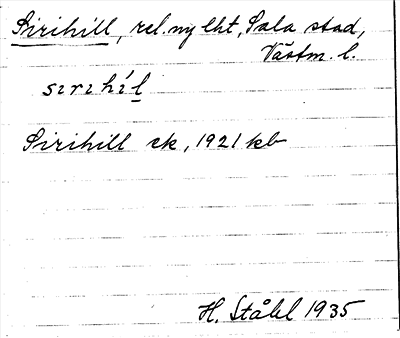 Sirihill, rel. ny lht, Sala stad,
Västm. l.
sırıhíl
Sirihill ek, 1921 kb
H. Ståhl 1935